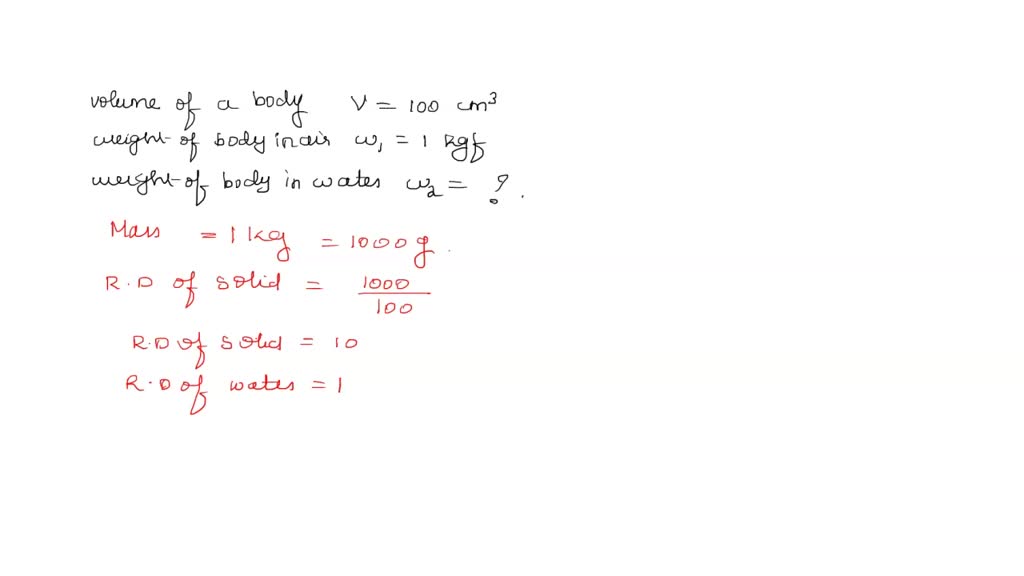 volume of a body V = 100 cm³
weight of body in air w₁ = 1 kgf
weight of body in water w₂ = ?.
Mass = 1 kg = 1000 g.
R.D of solid = 1000/100
R.D of solid = 10
R.D of water = 1